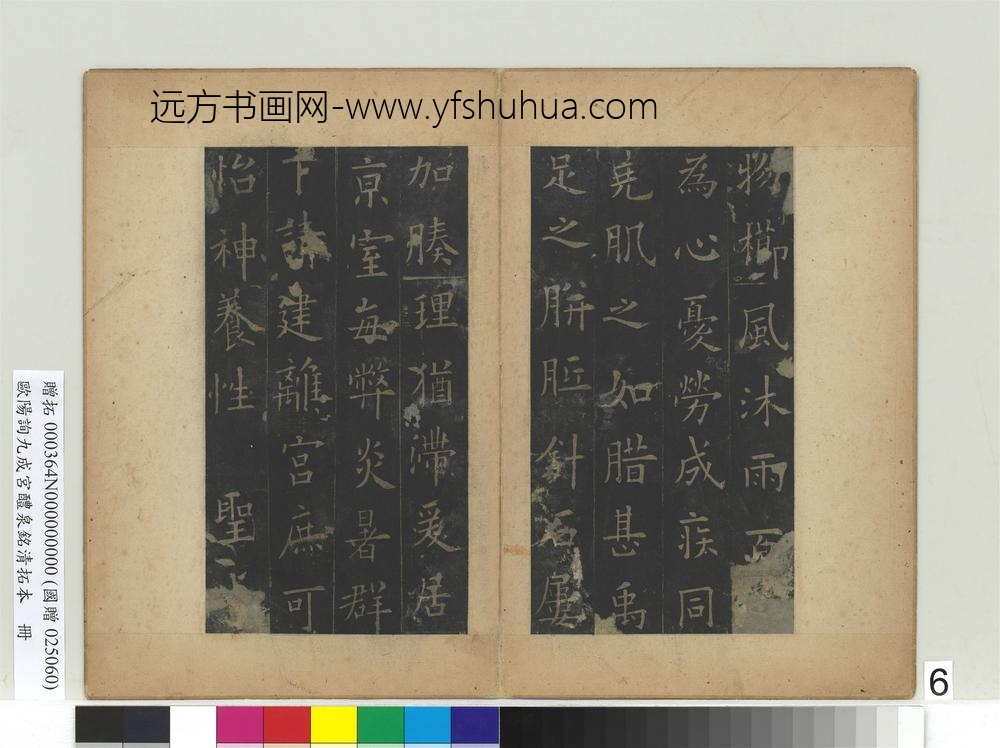 远方书画网-www.yfshuhua.com
物櫛風沐雨百
為心憂勞成疾同
堯肌之如腊甚禹
足之胼胝針石屢
加腠理猶滯爰居
京室每弊炎暑群
下請建離宮庶可
怡神養性 聖
贈拓 000364N000000000 (國贈 025060)
歐陽詢九成宮醴泉銘清拓本 冊
6